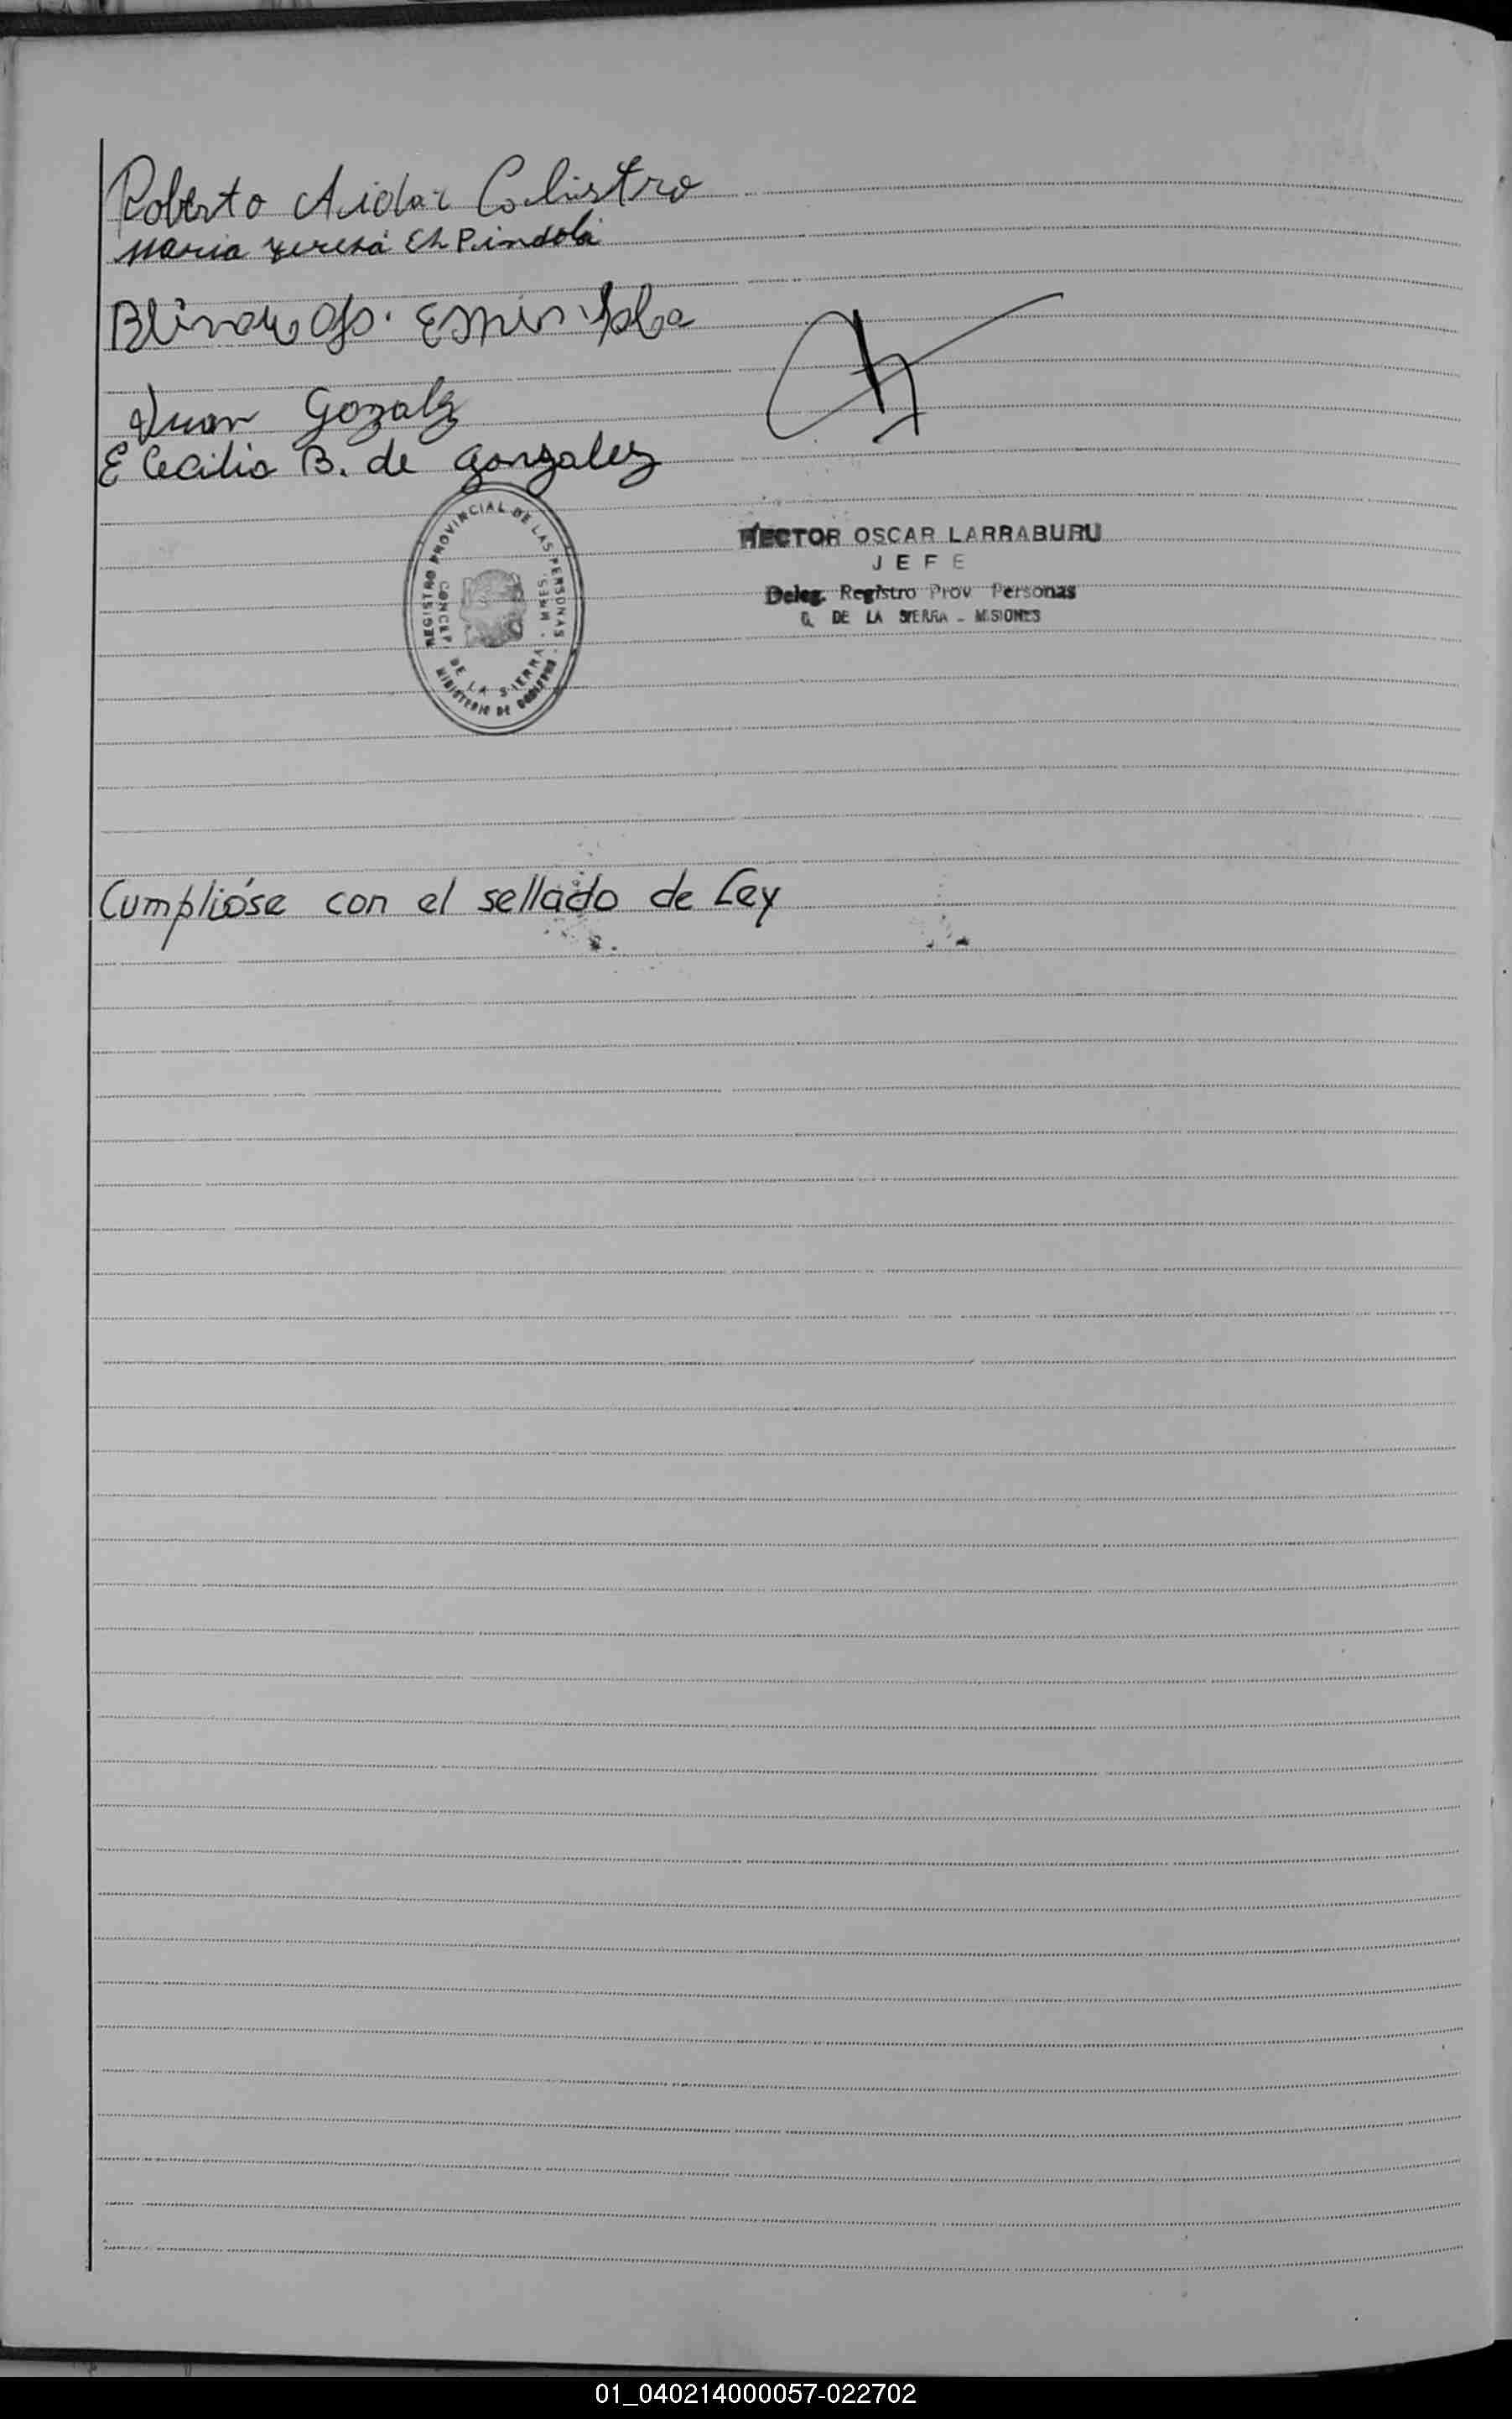 Roberto Aidar Calistro
Maria Teresa Ch Pindola
Juan Gozalz
E Cecilia B. de Gonzalez
REGISTRO PROVINCIAL DE LAS PERSONAS
CONCEP. DE LA SIERRA. MNES.
MINISTERIO DE GOBIERNO
HECTOR OSCAR LARRABURU
JEFE
Deleg. Registro Prov Personas
C. DE LA SIERRA - MISIONES
Cumplióse con el sellado de Ley
01_040214000057-022702